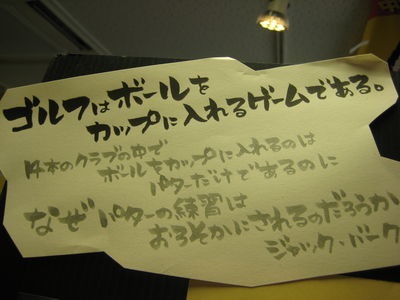 ゴルフはボールを
カップに入れるゲームである。
14本のクラブの中で
ボールをカップに入れるのは
パターだけであるのに
なぜパターの練習は
おろそかにされるのだろうか
ジャック・バーク